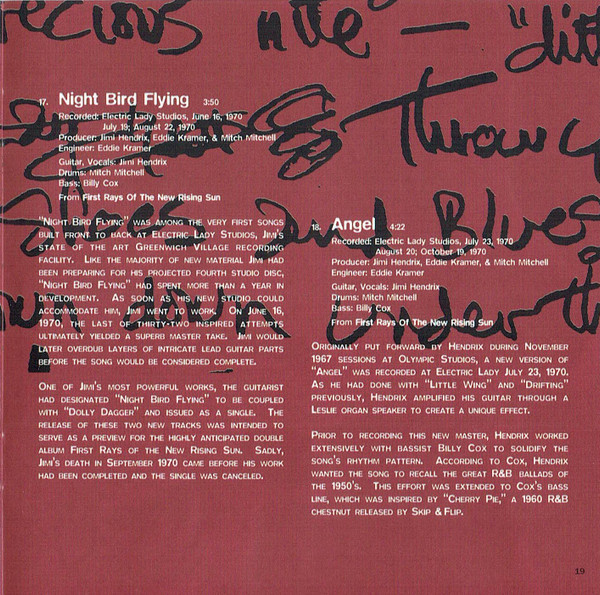 recious nite — "ditt
17. Night Bird Flying 3:50
Recorded: Electric Lady Studios, June 16, 1970
July 19; August 22, 1970
Producer: Jimi Hendrix, Eddie Kramer, & Mitch Mitchell
Engineer: Eddie Kramer
Guitar, Vocals: Jimi Hendrix
Drums: Mitch Mitchell
Bass: Billy Cox
From First Rays Of The New Rising Sun
"Night Bird Flying" was among the very first songs
built front to back at Electric Lady Studios, Jimi's
state of the art Greenwich Village recording
facility. Like the majority of new material Jimi had
been preparing for his projected fourth studio disc,
"Night Bird Flying" had spent more than a year in
development. As soon as his new studio could
accommodate him, Jimi went to work. On June 16,
1970, the last of thirty-two inspired attempts
ultimately yielded a superb master take. Jimi would
later overdub layers of intricate lead guitar parts
before the song would be considered complete.
One of Jimi's most powerful works, the guitarist
had designated "Night Bird Flying" to be coupled
with "Dolly Dagger" and issued as a single. The
release of these two new tracks was intended to
serve as a preview for the highly anticipated double
album First Rays of the New Rising Sun. Sadly,
Jimi's death in September 1970 came before his work
had been completed and the single was canceled.
Throw
Blues
down under th
18. Angel 4:22
Recorded: Electric Lady Studios, July 23, 1970
August 20; October 19, 1970
Producer: Jimi Hendrix, Eddie Kramer, & Mitch Mitchell
Engineer: Eddie Kramer
Guitar, Vocals: Jimi Hendrix
Drums: Mitch Mitchell
Bass: Billy Cox
From First Rays Of The New Rising Sun
Originally put forward by Hendrix during November
1967 sessions at Olympic Studios, a new version of
"Angel" was recorded at Electric Lady July 23, 1970.
As he had done with "Little Wing" and "Drifting"
previously, Hendrix amplified his guitar through a
Leslie organ speaker to create a unique effect.
Prior to recording this new master, Hendrix worked
extensively with bassist Billy Cox to solidify the
song's rhythm pattern. According to Cox, Hendrix
wanted the song to recall the great R&B ballads of
the 1950's. This effort was extended to Cox's bass
line, which was inspired by "Cherry Pie," a 1960 R&B
chestnut released by Skip & Flip.
19